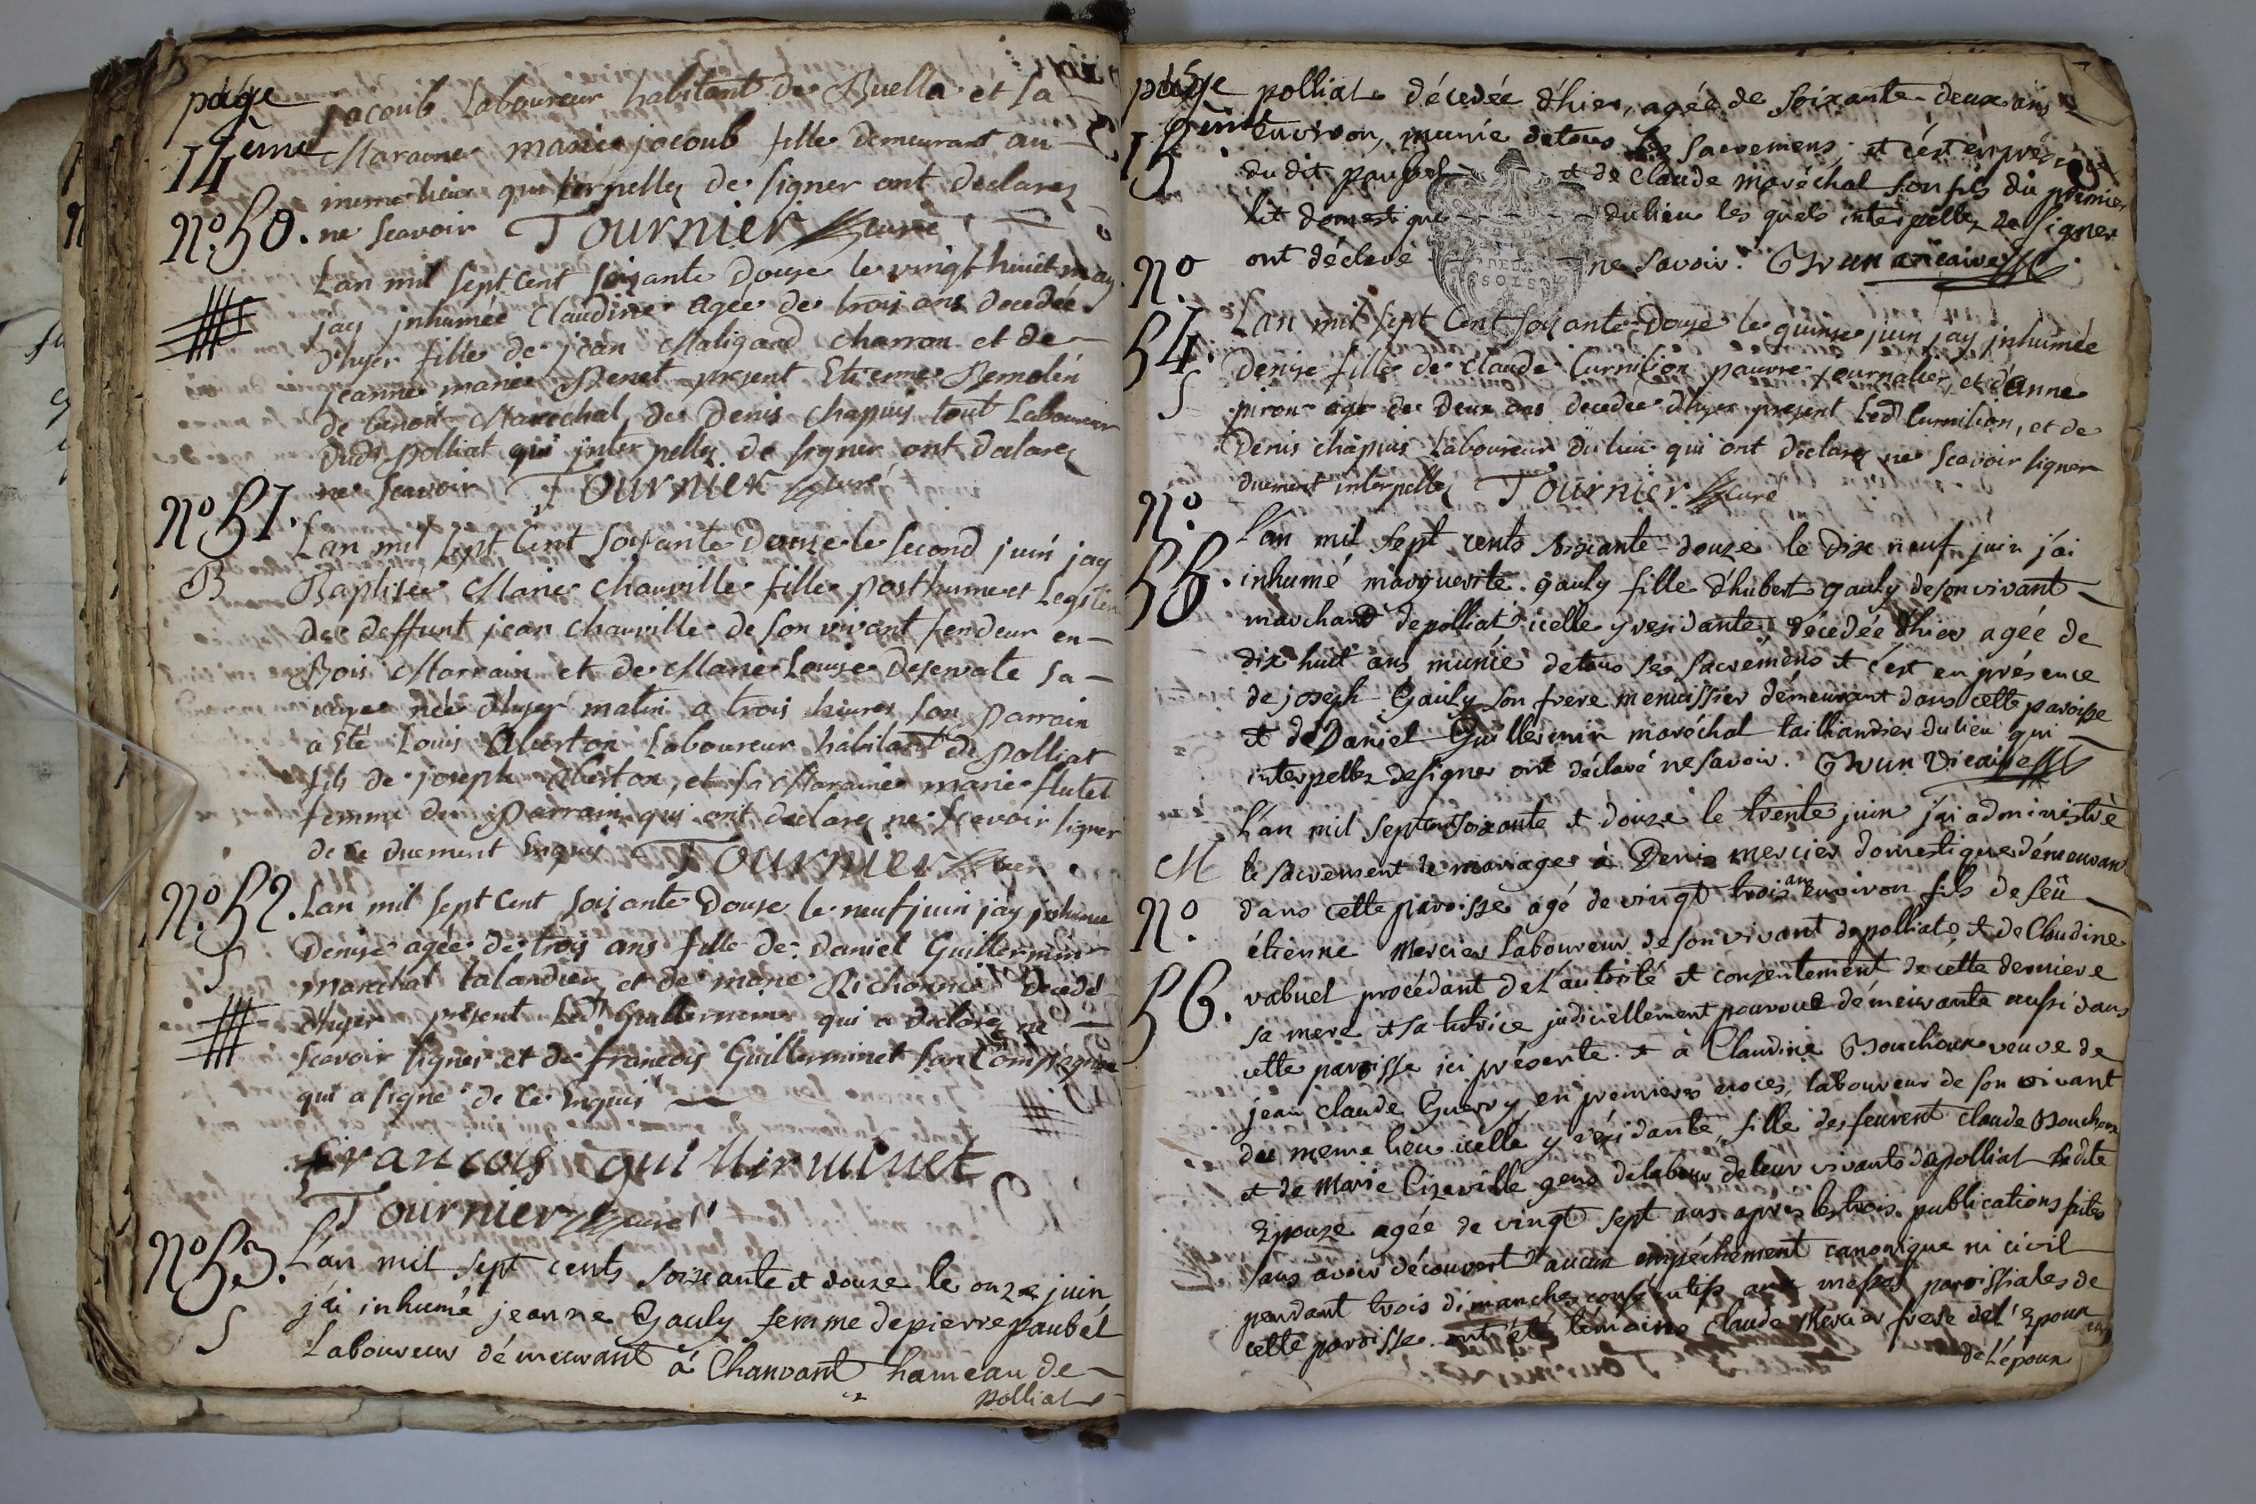 page
14ème
jacoub Laboureur habitant de Buella et sa
Maraine marie jacoub fille demeurant au
meme lieu qui interpellez de signer ont declarez
ne scavoir Tournier curé
N.º 50.
Lan mil sept cent soixante Douze le vingt huit may
jay jnhumée Claudine agee de trois ans decedée
d'hyer fille de jean Maligand charron et de
jeanne marie Benet present Etienne Remolin
de benoit Marechal, de Denis chapuis tout Laboureur
dudt polliat qui jnterpellez de signer ont declarez
ne scavoir Tournier curé
Nº 51.
B
Lan mil sept Cent soixante Douze le second juin jay
Baptisée Marie chauville fille posthume et Legitime
de deffunt jean chauville de son vivant fendeur en
Bois Marrain et de Marie Louise Deservate sa
veuve née d'hyer matin a trois heures son parrain
a eté Louis Oberton Laboureur habitant de Polliat
fils de joseph Oberton, et sa Maraine marie flutet
femme du Parrain qui ont declarez ne scavoir signer
de ce duement Enquis Tournier curé
Nº 52.
S
Lan mil sept Cent soixante Douze le neuf juin jay jnhumé
Denise agée de trois ans fille de Daniel Guillermin
marechal talandier, et de marie Richonnier decedé
d'hyer present Ledt Guillermin qui a declarez ne
scavoir signer et de francois Guillerminet
qui a signé de Ce Enquis
francois guillerminet
Tournier curé
Nº 53.
S
L'an mil sept cents soixante et douze le onze juin
j'ai inhumé jeanne Gauly femme de pierre paubel
Laboureur démeurant à Chanvant hameau de
polliat
page
15ème
polliat décedée d'hier, agée de soixante-deux ans
environ, munie de tous ses sacremens, et c'est en présence
du dit paubel et de Claude maréchal son fils du premier
lit domestique du lieu les quels interpellez de signer
ont déclaré ne savoir. Brun vicaire
Nº
54.
S
Lan mil sept Cent soixante Douze le quinze juin jay jnhumée
Denise fille de claude Curnilion pauvre journalier, et d'anne
piron age de Deux ans decedee d'hyer present Ledt Curnilion, et de
Denis chapuis Laboureur du lieu qui ont declarez ne scavoir signer
duement interpellez Tournier curé
Nº.
55.
L'an mil sept cents soixante-douze le dix neuf juin j'ai
inhumé marguerite gauly fille d'hubert gauly de son vivant
marchand de polliat icelle y residante, décedée d'hier agée de
dix huit ans munie de tous ses sacremens et c'est en présence
de joseph Gauly son frere menuissier démeurant dans cette paroisse
et de Daniel Guillermin maréchal tailliandier du lieu qui
interpellez de signer ont déclaré ne savoir. Brun Vicaire
M
Nº.
56.
L'an mil sept cent soixante et douze le trente juin j'ai administré
le sacrement de mariage à Denis mercier domestique démeurant
dans cette paroisse agé de vingt trois ans environ fils de feû
étienne Mercier Laboureur de son vivant de polliat, et de Claudine
vabuel procédant de l'autorité et consentement de cette derniere
sa mere et sa tutrice judiciellement pourvue démeurante aussi dans
cette paroisse ici présente. et à Claudine Bouchoux veuve de
jean claude Guerry en premieres noces, laboureur de son vivant
du meme lieu icelle y résidante, fille des feurent claude Bouchoux
et de Marie Cizeville gens de labeur de leur vivants de polliat Ladite
Epouze agée de vingt sept ans après les trois publications faites
sans avoir découvert aucun empêchement canonique ni civil
pendant trois dimanches consécutifs aux messes paroissiales de
cette paroisse. ont été témoins Claude Mercier frere de l'Epoux
de L'époux